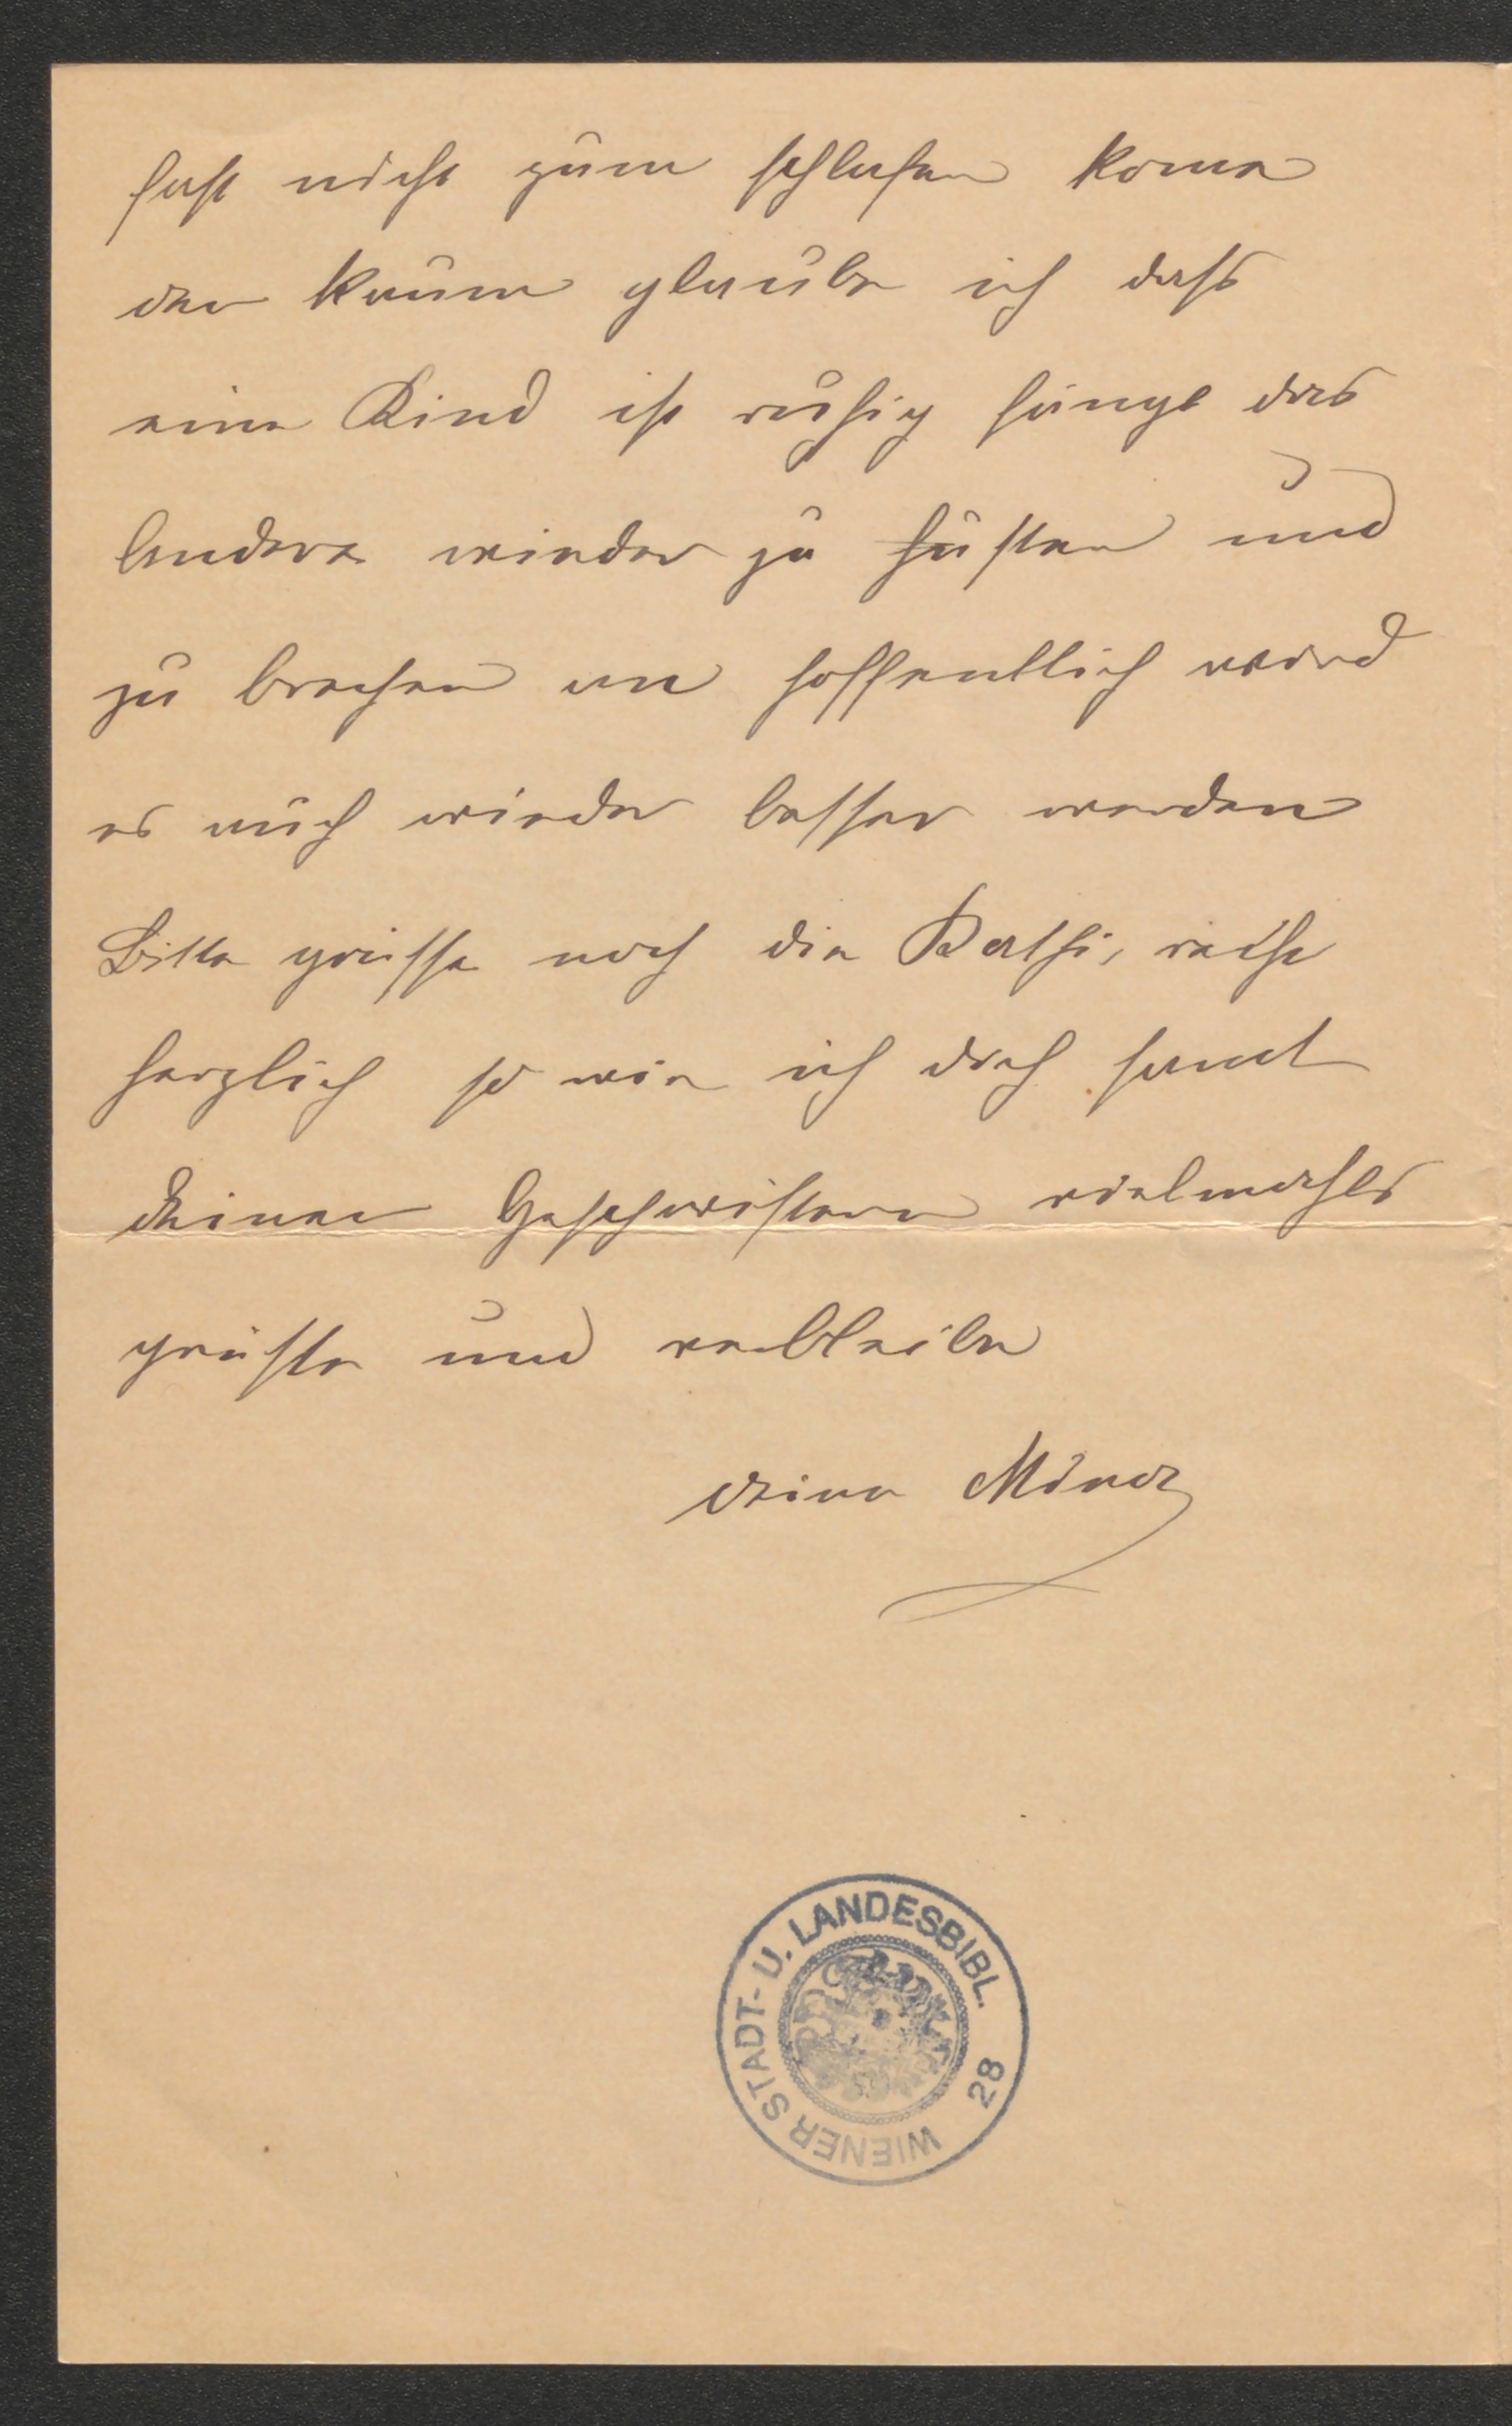 fast nicht zum schlafen kome
den kaum glaube ich dass
eine Kind ist ruhig fängt das
Andere wieder zu husten und
zu brechen an hoffentlich wird
es auch wieder besser werden
Bitte grüsse noch die Kathi, recht
herzlich so wie ich dich samt
deinen Geschwistern vielmahls
grüsse und verbleibe
deine Minna
WIENER STADT- U. LANDESBIBL.
28